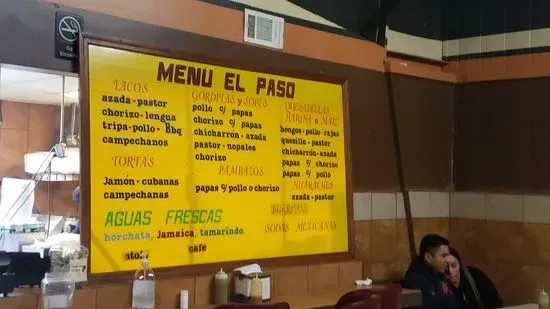 No
Smoking
MENU EL PASO
TACOS
azada-pastor
chorizo-lengua
tripa-pollo-Bbq
campechanos
TORTAS
Jamón-cubanas
campechanas
GORDITAS y SOPES
pollo c/ papas
chorizo c/ papas
chicharrón-azada
pastor-nopales
chorizo
PAMBAZOS
papas c/ pollo o chorizo
QUESADILLAS
HARINA o MAIZ
hongos-pollo rajas
quesillo-pastor
chicharrón-azada
papas c/ chorizo
papas c/ pollo
HUARACHES
azada-pastor
BURRITOS
SODAS MEXICANAS
AGUAS FRESCAS
horchata, Jamaica, tamarindo.
atole
cafe